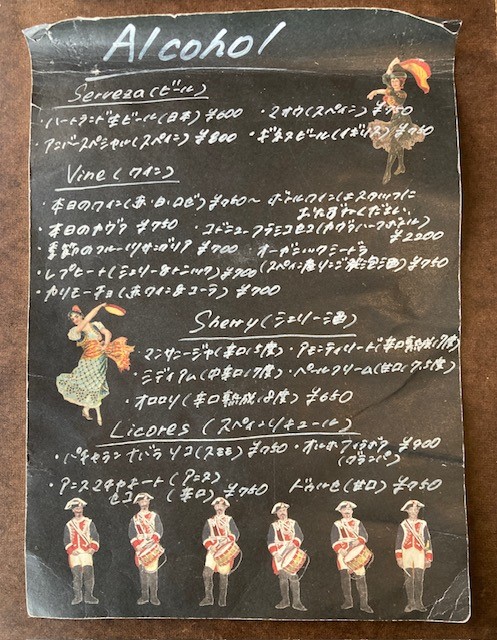 Alcohol
Serveza(ビール)
・ハートランド生ビール(日本)¥600 ・マオウ(スペイン)¥750
・アンバースペシャル(スペイン)¥800 ・ギネスビール(イギリス)¥750
Vine(ワイン)
・本日のワイン(赤・白・ロゼ)¥750〜 ・ボトルワインはスタッフに
おたずねください
・本日のカヴァ ¥750 ・コドニュークラシコセコ(カヴァハーフボトル)
¥2200
・季節のフルーツサングリア ¥700 ・オーガニックシードラ
・レブヒート(シェリー&トニック)¥700 (スペイン産リンゴ発泡酒)¥750
・カリモーチョ(赤ワイン&コーラ)¥700
Sherry(シェリー酒)
・マンサニージャ(辛口15度) ・アモンティリャード(辛口熟成17度)
・ミディアム(中辛口17度) ・ペールクリーム(甘口17.5度)
・オロロソ(辛口熟成18度) ¥650
Licores (スペインリキュール)
・パチャランナバラ ソコ(スモモ)¥750 ・オルホ ¥900
(グランパ)
・アニスマチャキート(アニス)
セコ (辛口) ¥750 ドゥルセ(甘口) ¥750